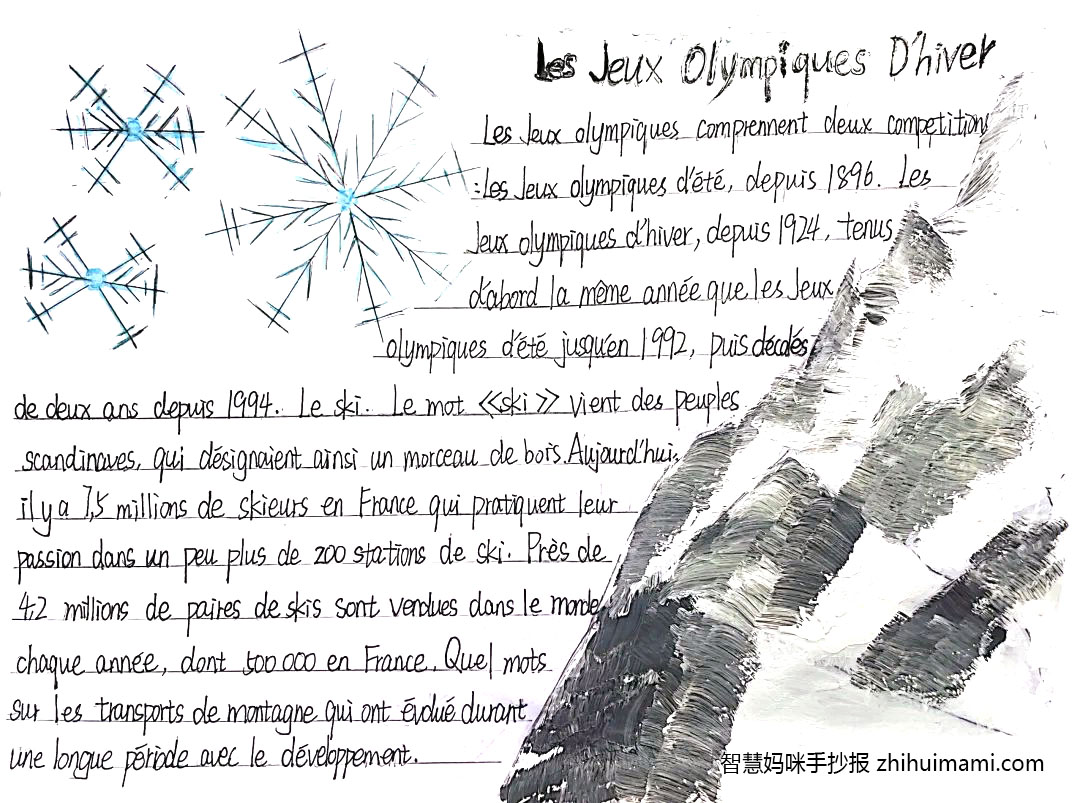 Les Jeux Olympiques D'hiver
Les Jeux olympiques comprennent deux competitions
:Les Jeux olympiques d'été, depuis 1896. Les
Jeux olympiques d'hiver, depuis 1924, tenus
d'abord la même année que les Jeux
olympiques d'été jusqu'en 1992, puis décalés
de deux ans depuis 1994. Le ski. Le mot «ski» vient des peuples
scandinaves, qui désignaient ainsi un morceau de bois. Aujourd'hui,
il y a 7,5 millions de skieurs en France qui pratiquent leur
passion dans un peu plus de 200 stations de ski. Près de
4.2 millions de paires de skis sont vendues dans le monde
chaque année, dont 500 000 en France. Quel mots
sur les transports de montagne qui ont évolué durant
une longue période avec le développement.
智慧妈咪手抄报 zhihuimami.com